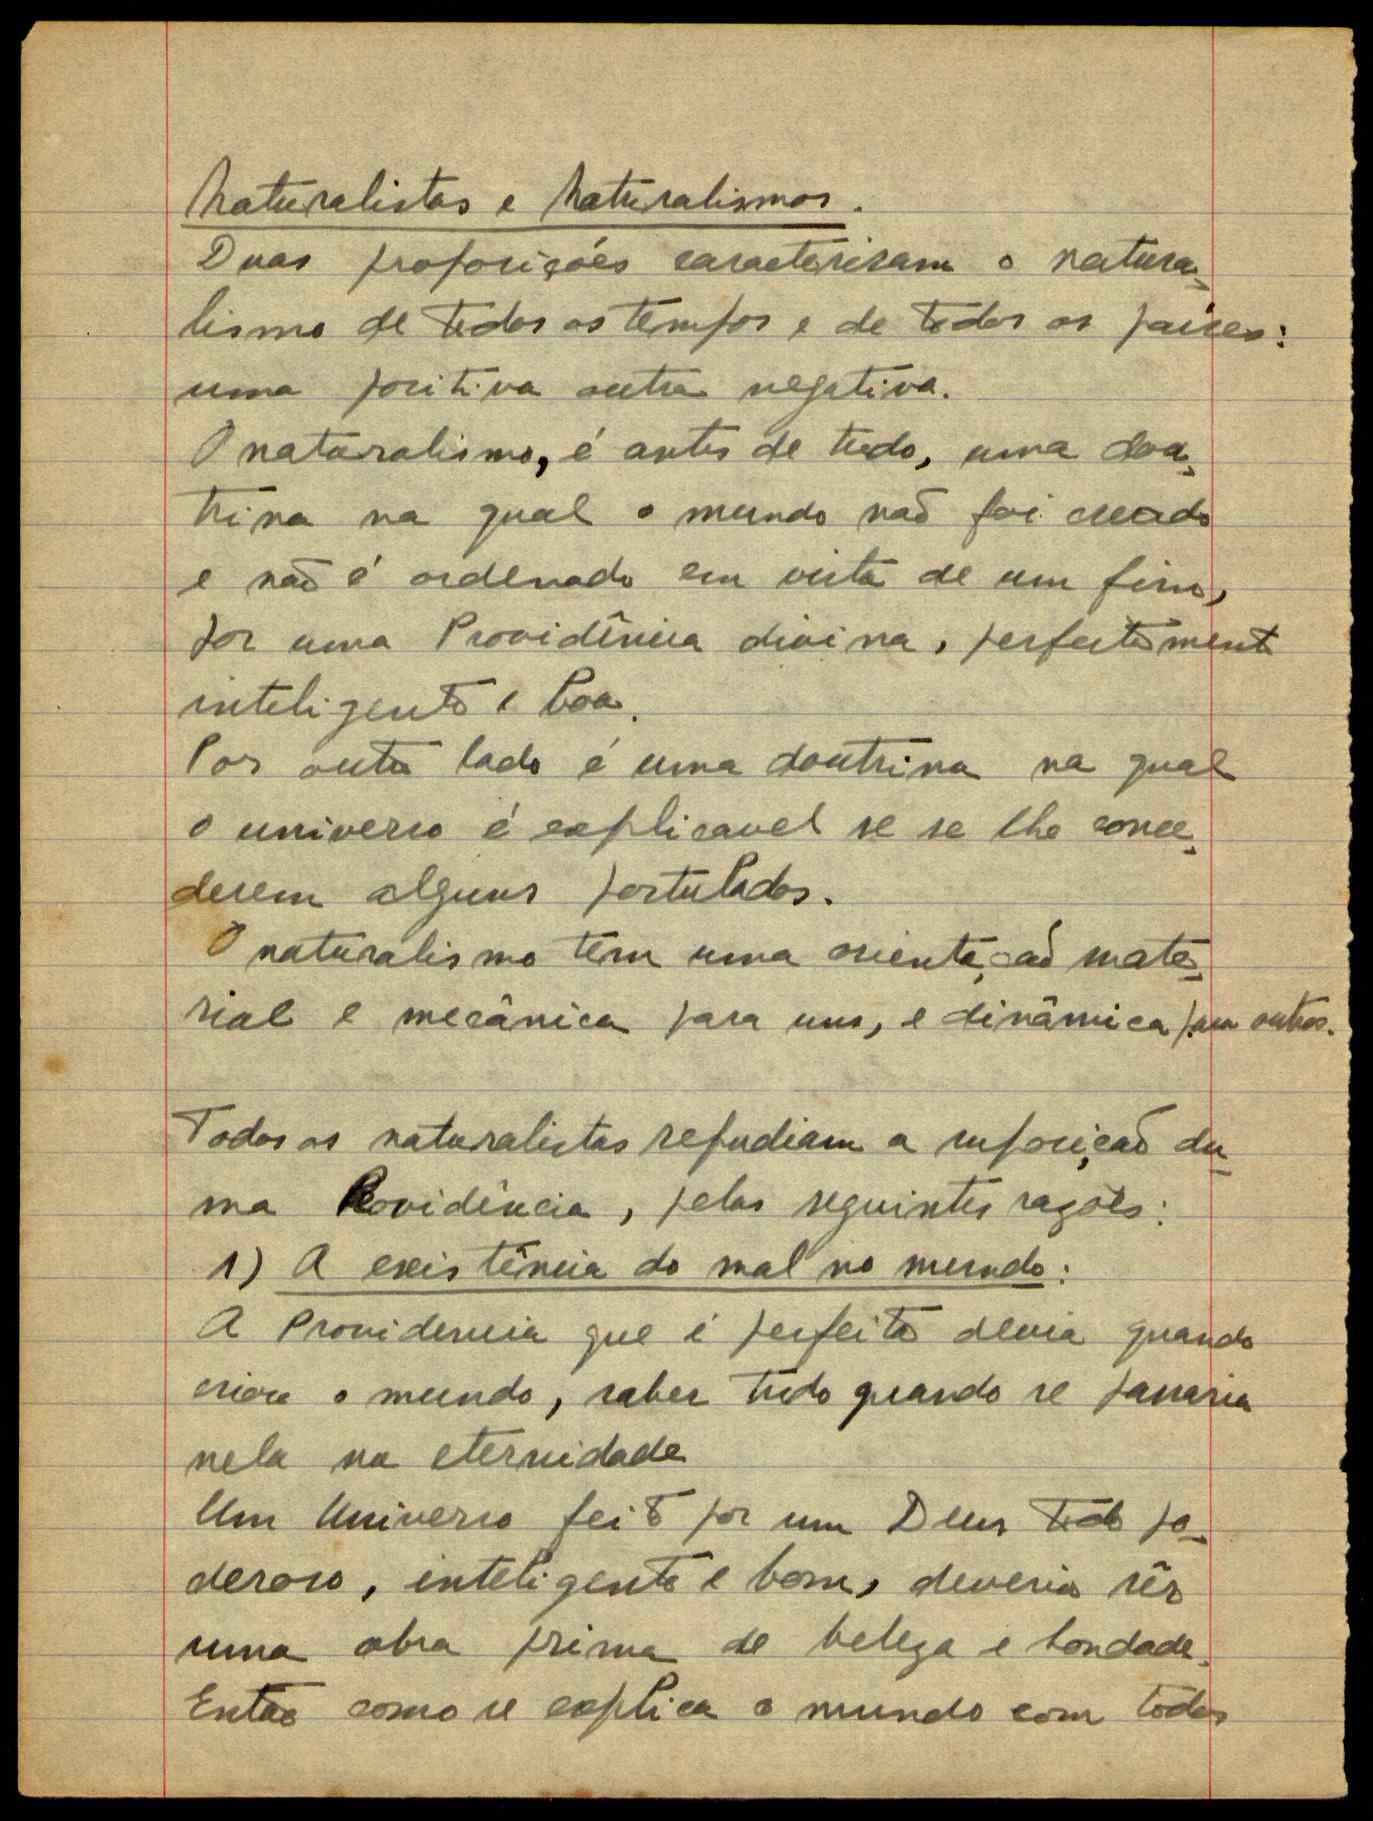 Naturalistas e Naturalismos.
Duas proposições caracterisam o natura-
lismo de todos os tempos e de todos os países:
uma positiva outra negativa.
O naturalismo, é antes de tudo, uma dou-
trina na qual o mundo não foi creado
e não é ordenado em vista de um fim,
por uma Providência divina, perfeitamente
inteligente e boa.
Por outro lado é uma doutrina na qual
o universo é explicavel se se lhe conce-
derem alguns postulados.
O naturalismo tem uma orientação mate-
rial e mecânica para uns, e dinâmica para outros.
Todos os naturalistas repudiam a suposição du-
ma Providência, pelas seguintes razões:
1) A existência do mal no mundo:
A Providencia que é perfeita devia quando
criou o mundo, saber tudo quando se passaria
nela na eternidade
Um Universo feito por um Deus todo po-
deroso, inteligente e bom, deveria sêr
uma obra prima de beleza e bondade.
Então como se explica o mundo com todos